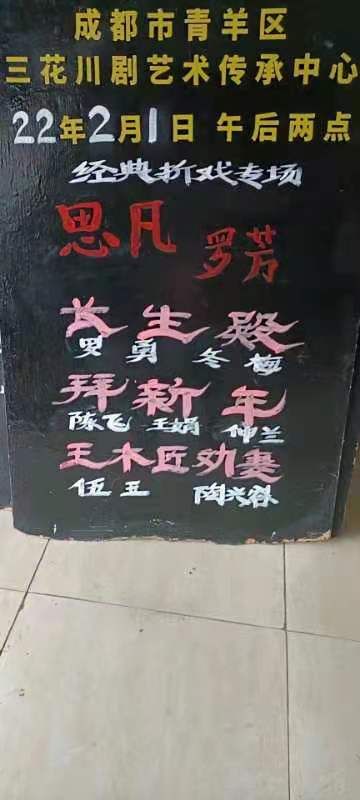 成都市青羊区
三花川剧艺术传承中心
22年2月1日 午后两点
经典折戏专场
思凡 罗芳
长生殿
罗勇 冬梅
拜新年
陈飞 王娟 仲兰
王木匠劝妻
伍王 陶兴容